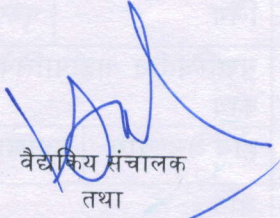 वैद्यकिय संचालक
तथा